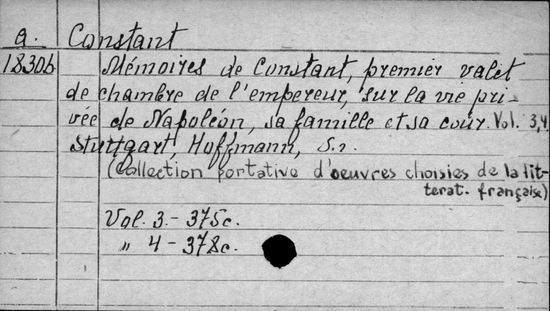 a. Constant
1830b Mémoires de Constant, premier valet
de chambre de l'empereur, sur la vie pri-
vée de Napoléon, sa famille et sa cour. Vol. 3,4.
Stuttgart, Hoffmann, s.
(Collection portative d'oeuvres choisies de la lit-
terat. française)
Vol. 3. - 375c.
" 4 - 378c.